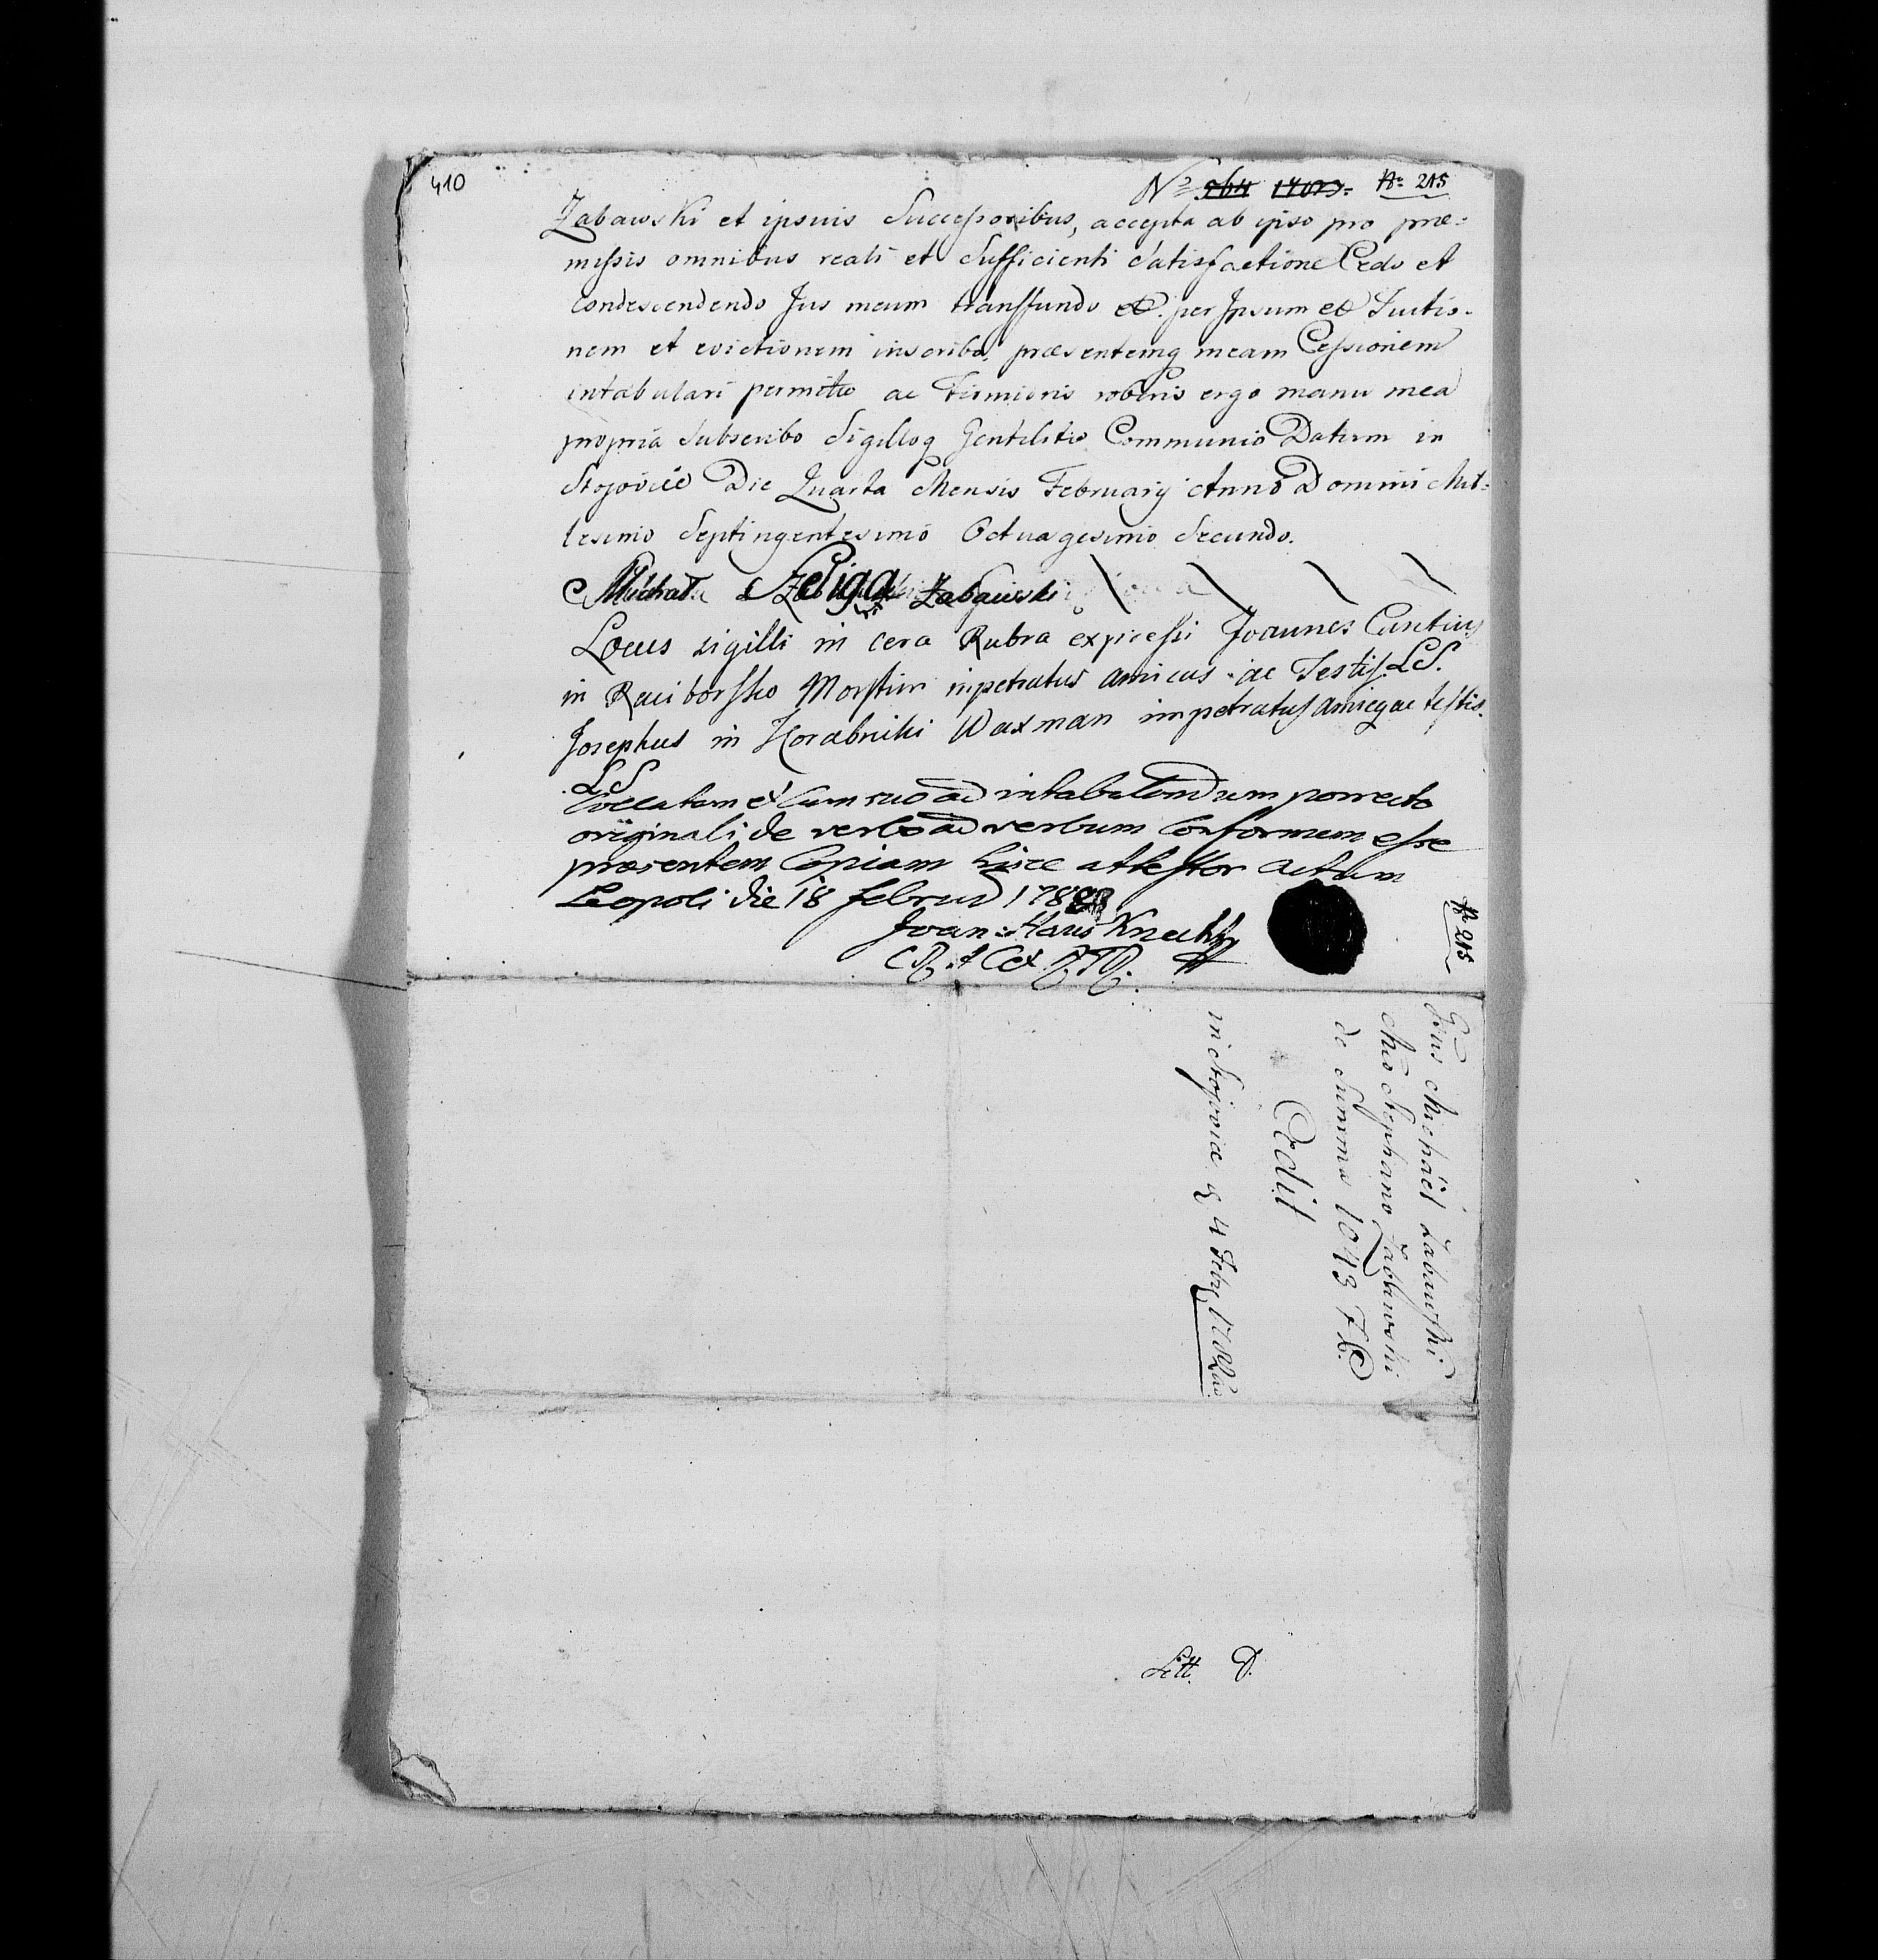 410
No 964 1703. No 215
Żabawski et ipsius Successoribus, accepta ab ipso pro præ-
missis omnibus reali et sufficienti satisfactione Cedo et
condescendendo Jus meum transfundo et per Ipsum et Tuitio-
nem et evictionem inscribo, præsentemq meam Cessionem
intabulari permitto ac firmioris roboris ergo manu mea
propria subscribo Sigilloq Gentilitio Communio Datum in
Stojovice Die Quarta Mensis Februarij Anno Domini Mil-
lesimo Septingentesimo Octuagesimo Secundo.
Michał Szeliga Żabawski
Locus sigilli in cera Rubra expressi Joannes Cantius
in Raciborsko Morstin inpetratus amicus ac Testis. LS.
Josephus in Korabniki Waxman impetratus amicq ac testis.
LS
Collatam et Cum suo ad intabulandum porrecto
originali de verbo ad verbum Conformem esse
præsentem Copiam hisce attestor Actum
Leopoli die 18 Februa
Joan: Haus Knecht
No 215
Gsus Michaël Żabawski
Mco Stephano Żabawski
de Summa 1043 f
Cedit
in Stojovice d 4 Febr 1782
Litt. D.